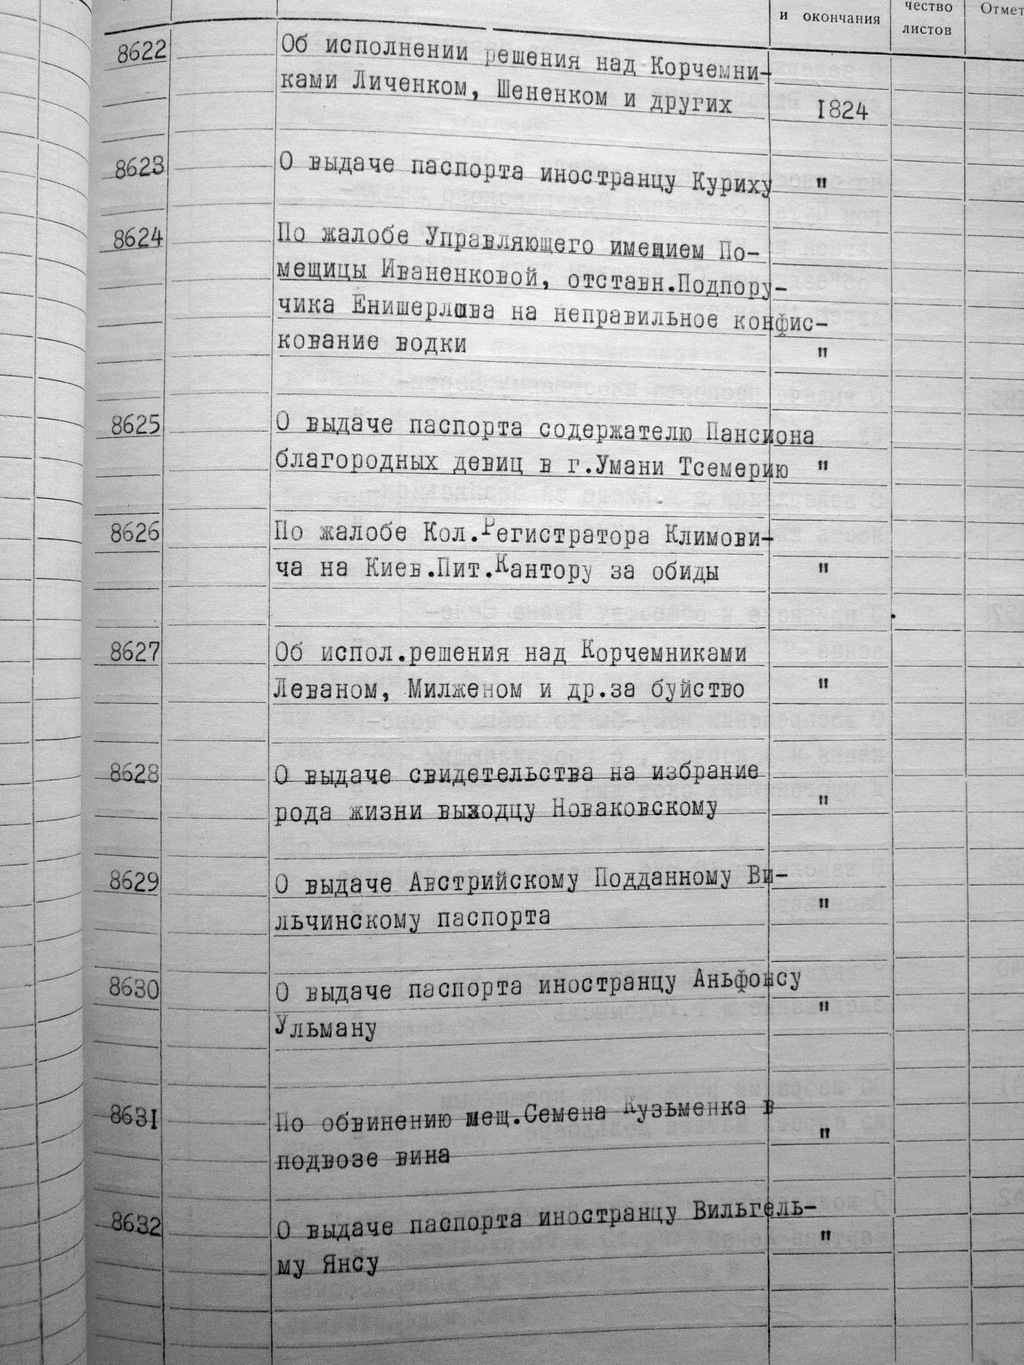 и окончания
чество
листов
Отмет
8622
Об исполнении решения над Корчемни-
ками Личенком, Шененком и других
1824
8623
О выдаче паспорта иностранцу Куриху "
8624
По жалобе Управляющего имещием По-
мещицы Иваненковой, отставн.Подпору-
чика Енишерлова на неправильное конфис-
кование водки "
8625
О выдаче паспорта содержателю Пансиона
благородных девиц в г.Умани Тсемерию "
8626
По жалобе Кол.Регистратора Климови-
ча на Киев.Пит.Кантору за обиды "
8627
Об испол.решения над Корчемниками
Леваном, Милженом и др.за буйство "
8628
О выдаче свидетельства на избрание
рода жизни выходцу Новаковскому "
8629
О выдаче Австрийскому Подданному Ви-
льчинскому паспорта "
8630
О выдаче паспорта иностранцу Аньфонсу
Ульману "
8631
По обвинению мещ.Семена Кузьменка в
подвозе вина "
8632
О выдаче паспорта иностранцу Вильгель-
му Янсу "